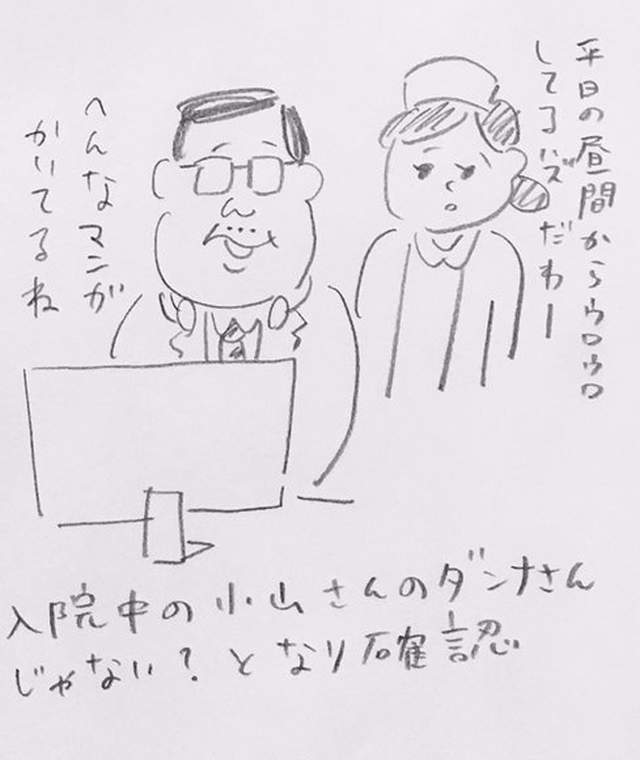 平日の昼間からウロウロ
してるハズだわー
へんなマンガ
かいてるね
入院中の小山さんのダンナさん
じゃない？となり確認